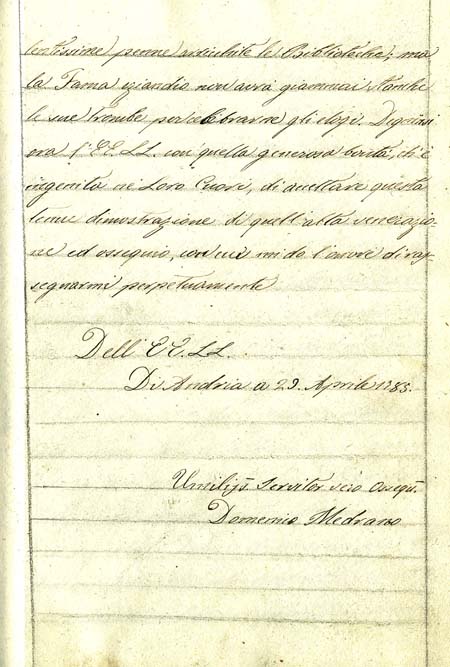 lentissime penne arricchite le Biblioteche; ma
la Fama eziandio non avrà giammai stanche
le sue trombe per celebrarvne gli elogj. Digninsi
ora l'EE.LL. con quella generosa bontà, ch'è
ingenita ne Loro Cuori, di accettare questa
tenue dimostrazione di quell'alta venerazio-
ne ed ossequio, con cui mi do l'onore di ras-
segnarmi perpetuamente
Dell'EE.LL.
Di Andria a 29. Aprile 1785.
Umiliss. Servitor vero Ossequ.
Domenico Medrano